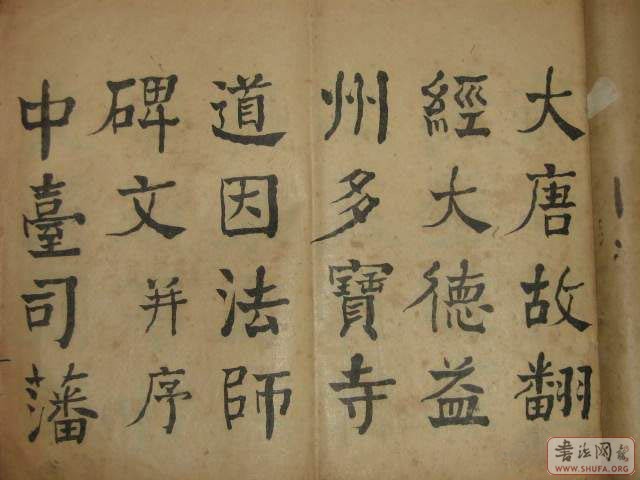 大唐故翻
經大德益
州多寶寺
道因法師
碑文并序
中臺司藩
書法网
WWW.SHUFA.ORG